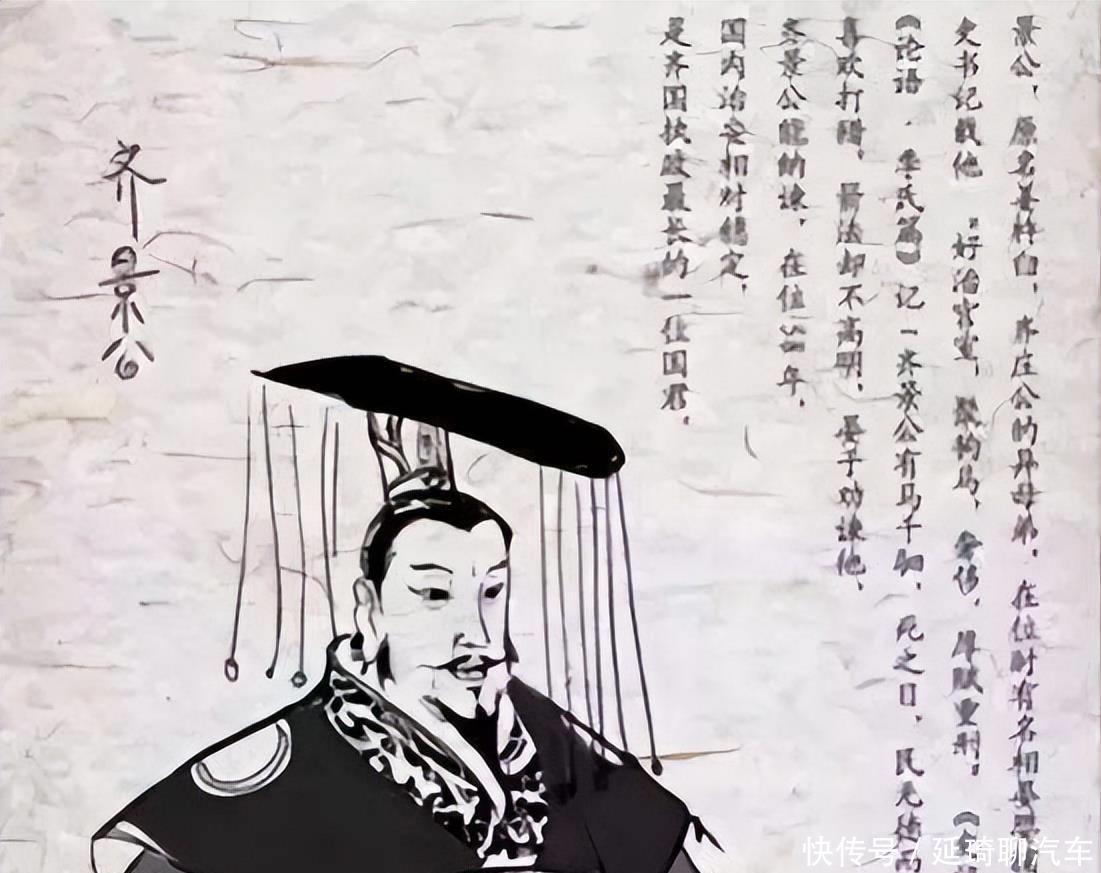 景公，原名姜杵臼，齐庄公的异母弟，在位时有名相晏婴
史书记载他“好治宫室，聚狗马，奢侈，厚赋重刑。《
《论语．季氏篇》记—齐景公有马千驷，死之日，民无德而
喜欢打猎，箭法却不高明，晏子劝谏他，
景公能纳谏，在位 年，
国内治安相对稳定，
是齐国执政最长的一位国君。
齐景公
快传号 / 延琦聊汽车